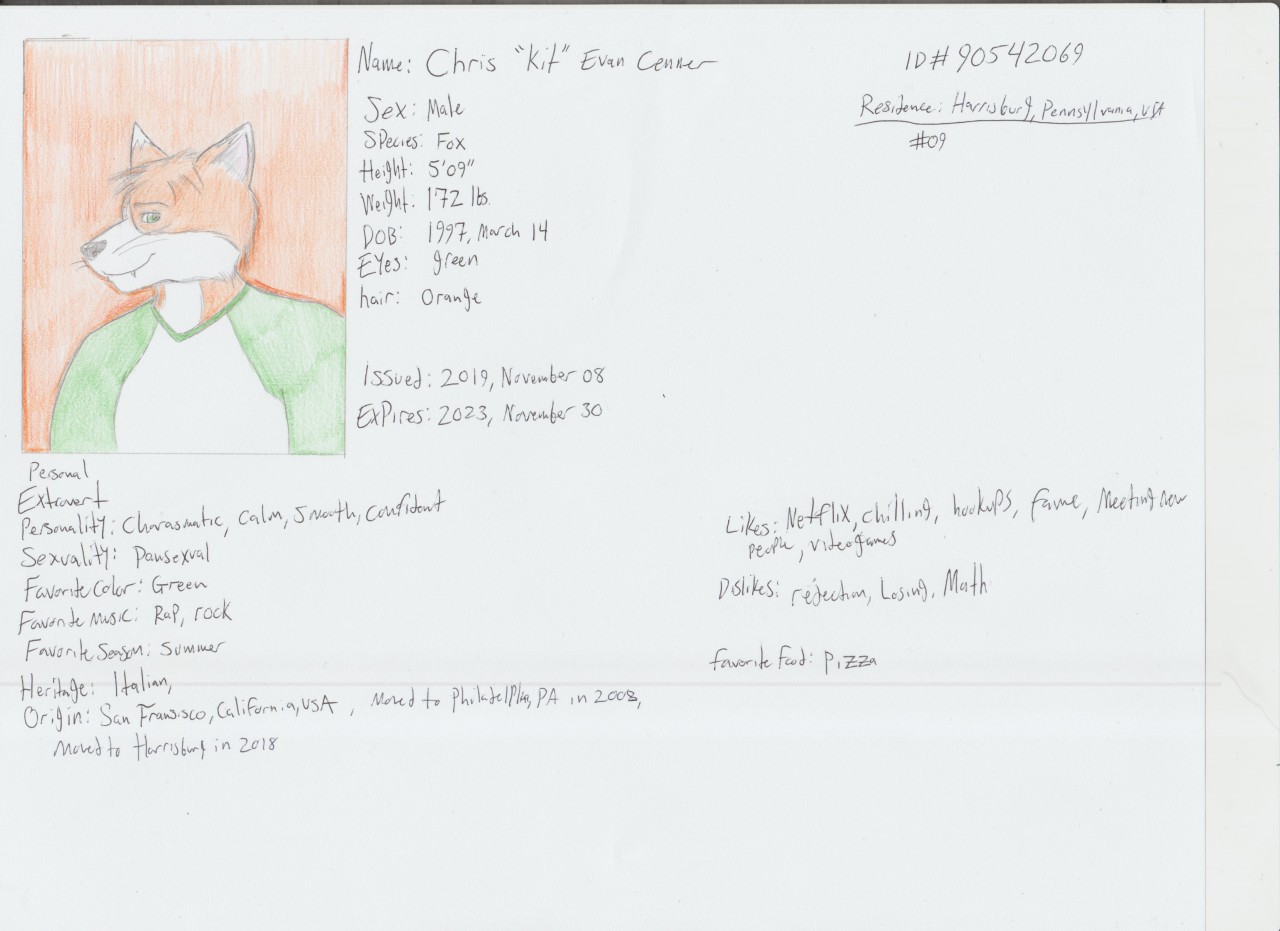 Name: Chris "Kit" Evan Cenner
ID# 90542069
Residence: Harrisburg, Pennsylvania, USA
#09
Sex: Male
Species: Fox
Height: 5'09"
Weight: 172 lbs.
DOB: 1997, March 14
Eyes: green
hair: Orange
Issued: 2019, November 08
Expires: 2023, November 30
Personal
Extrovert
Personality: Charasmatic, Calm, Smooth, Confident
Sexuality: Pansexual
Favorite Color: Green
Favorite Music: Rap, rock
Favorite Season: Summer
Heritage: Italian,
Origin: San Fransisco, California, USA, Moved to Philadelphia, PA in 2008,
Moved to Harrisburg in 2018
Likes: Netflix, chilling, hookups, fame, Meeting new
people, videogames
Dislikes: rejection, Losing, Math
Favorite Food: Pizza